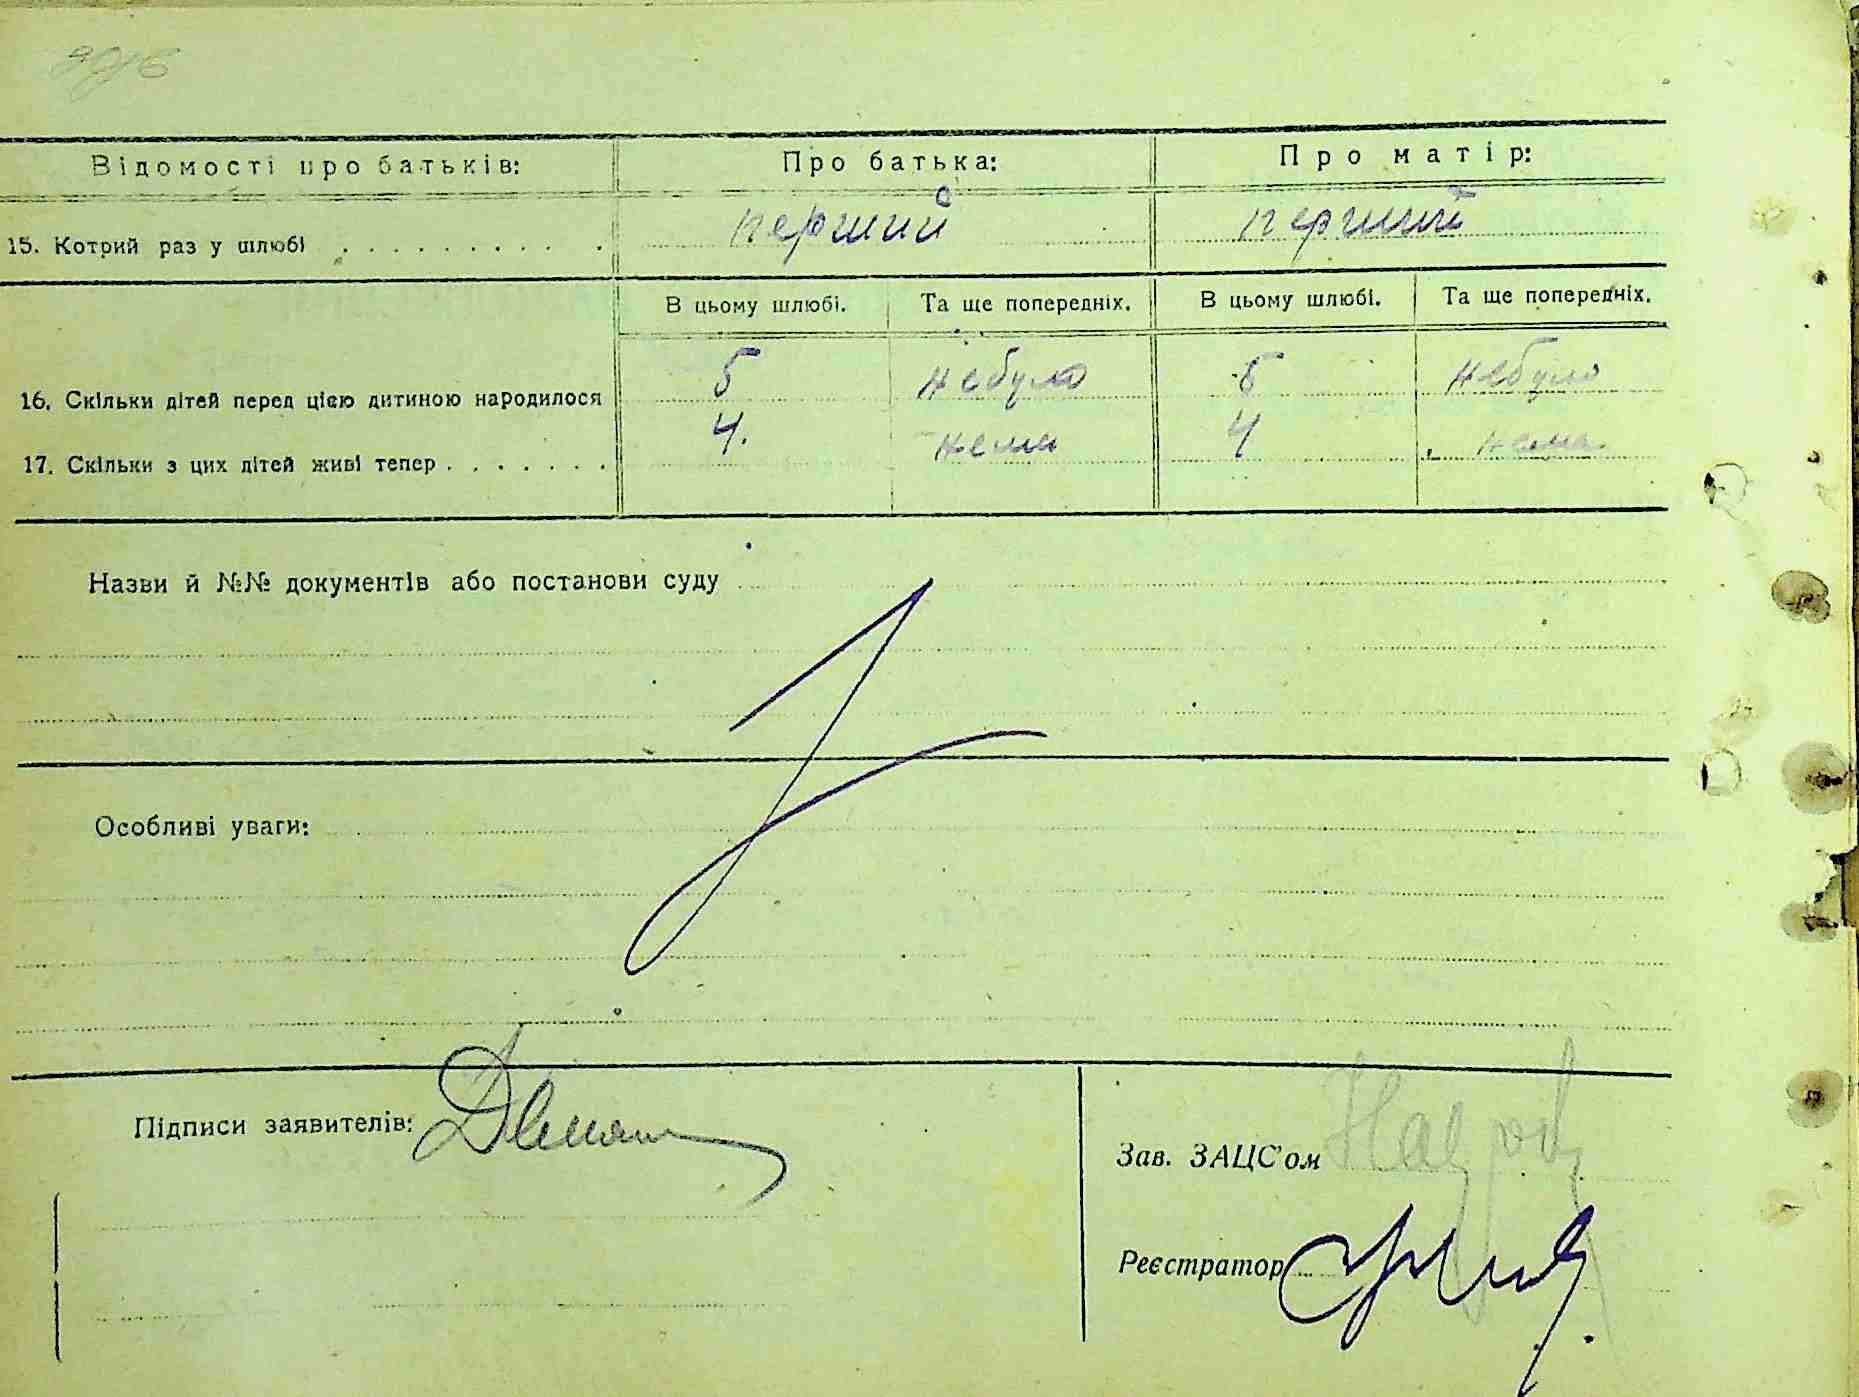 Відомості про батьків: Про батька: Про матір:
15. Котрий раз у шлюбі . . . . . . . . . . перший перший
В цьому шлюбі. Та ще попередніх. В цьому шлюбі. Та ще попередніх.
16. Скільки дітей перед цією дитиною народилося 5 небуло 5 небуло
17. Скільки з цих дітей живі тепер . . . . . . . 4. нема 4 нема
Назви й №№ документів або постанови суду
Особливі уваги:
Підписи заявителів:
Зав. ЗАЦС'ом
Реєстратор